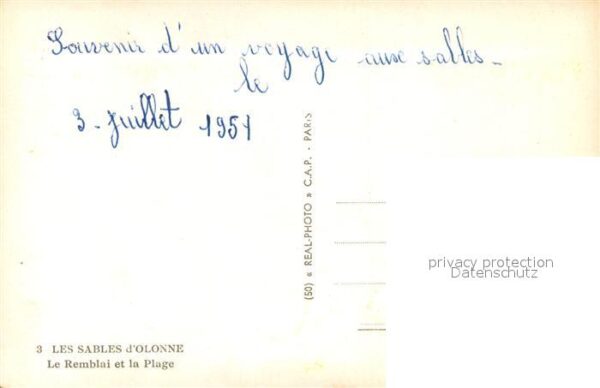 Souvenir d'un voyage aux sables -
le
3 - juillet 1951
(50) « REAL-PHOTO » C.A.P. - PARIS
privacy protection
Datenschutz
3 LES SABLES d'OLONNE
Le Remblai et la Plage